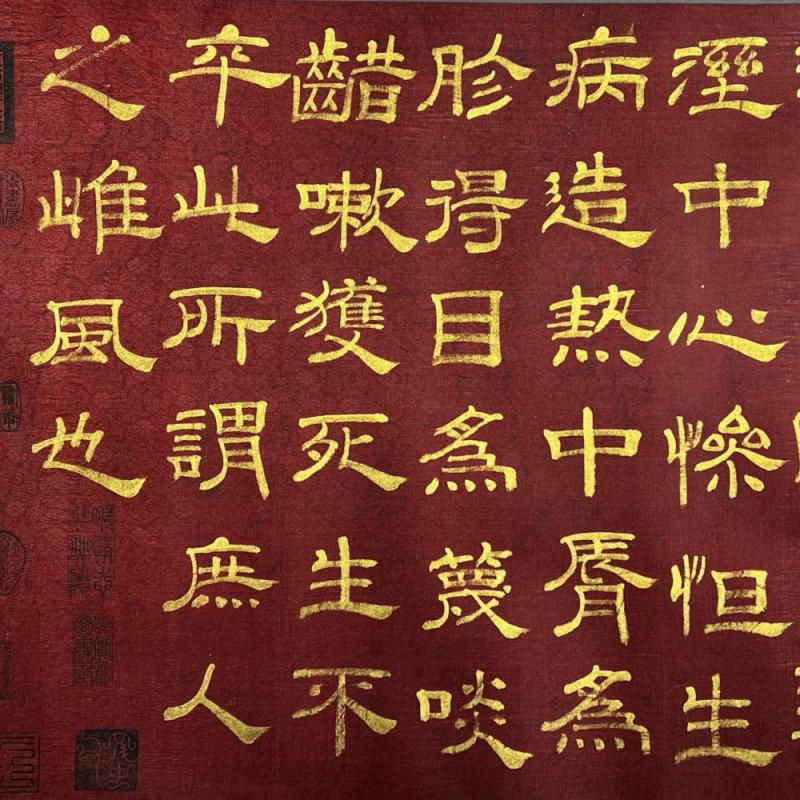 溼中心慘怛生
病造熱中脣爲
胗得目爲蔑啖
齰嗽獲死生不
卒此所謂庶人
之雌風也